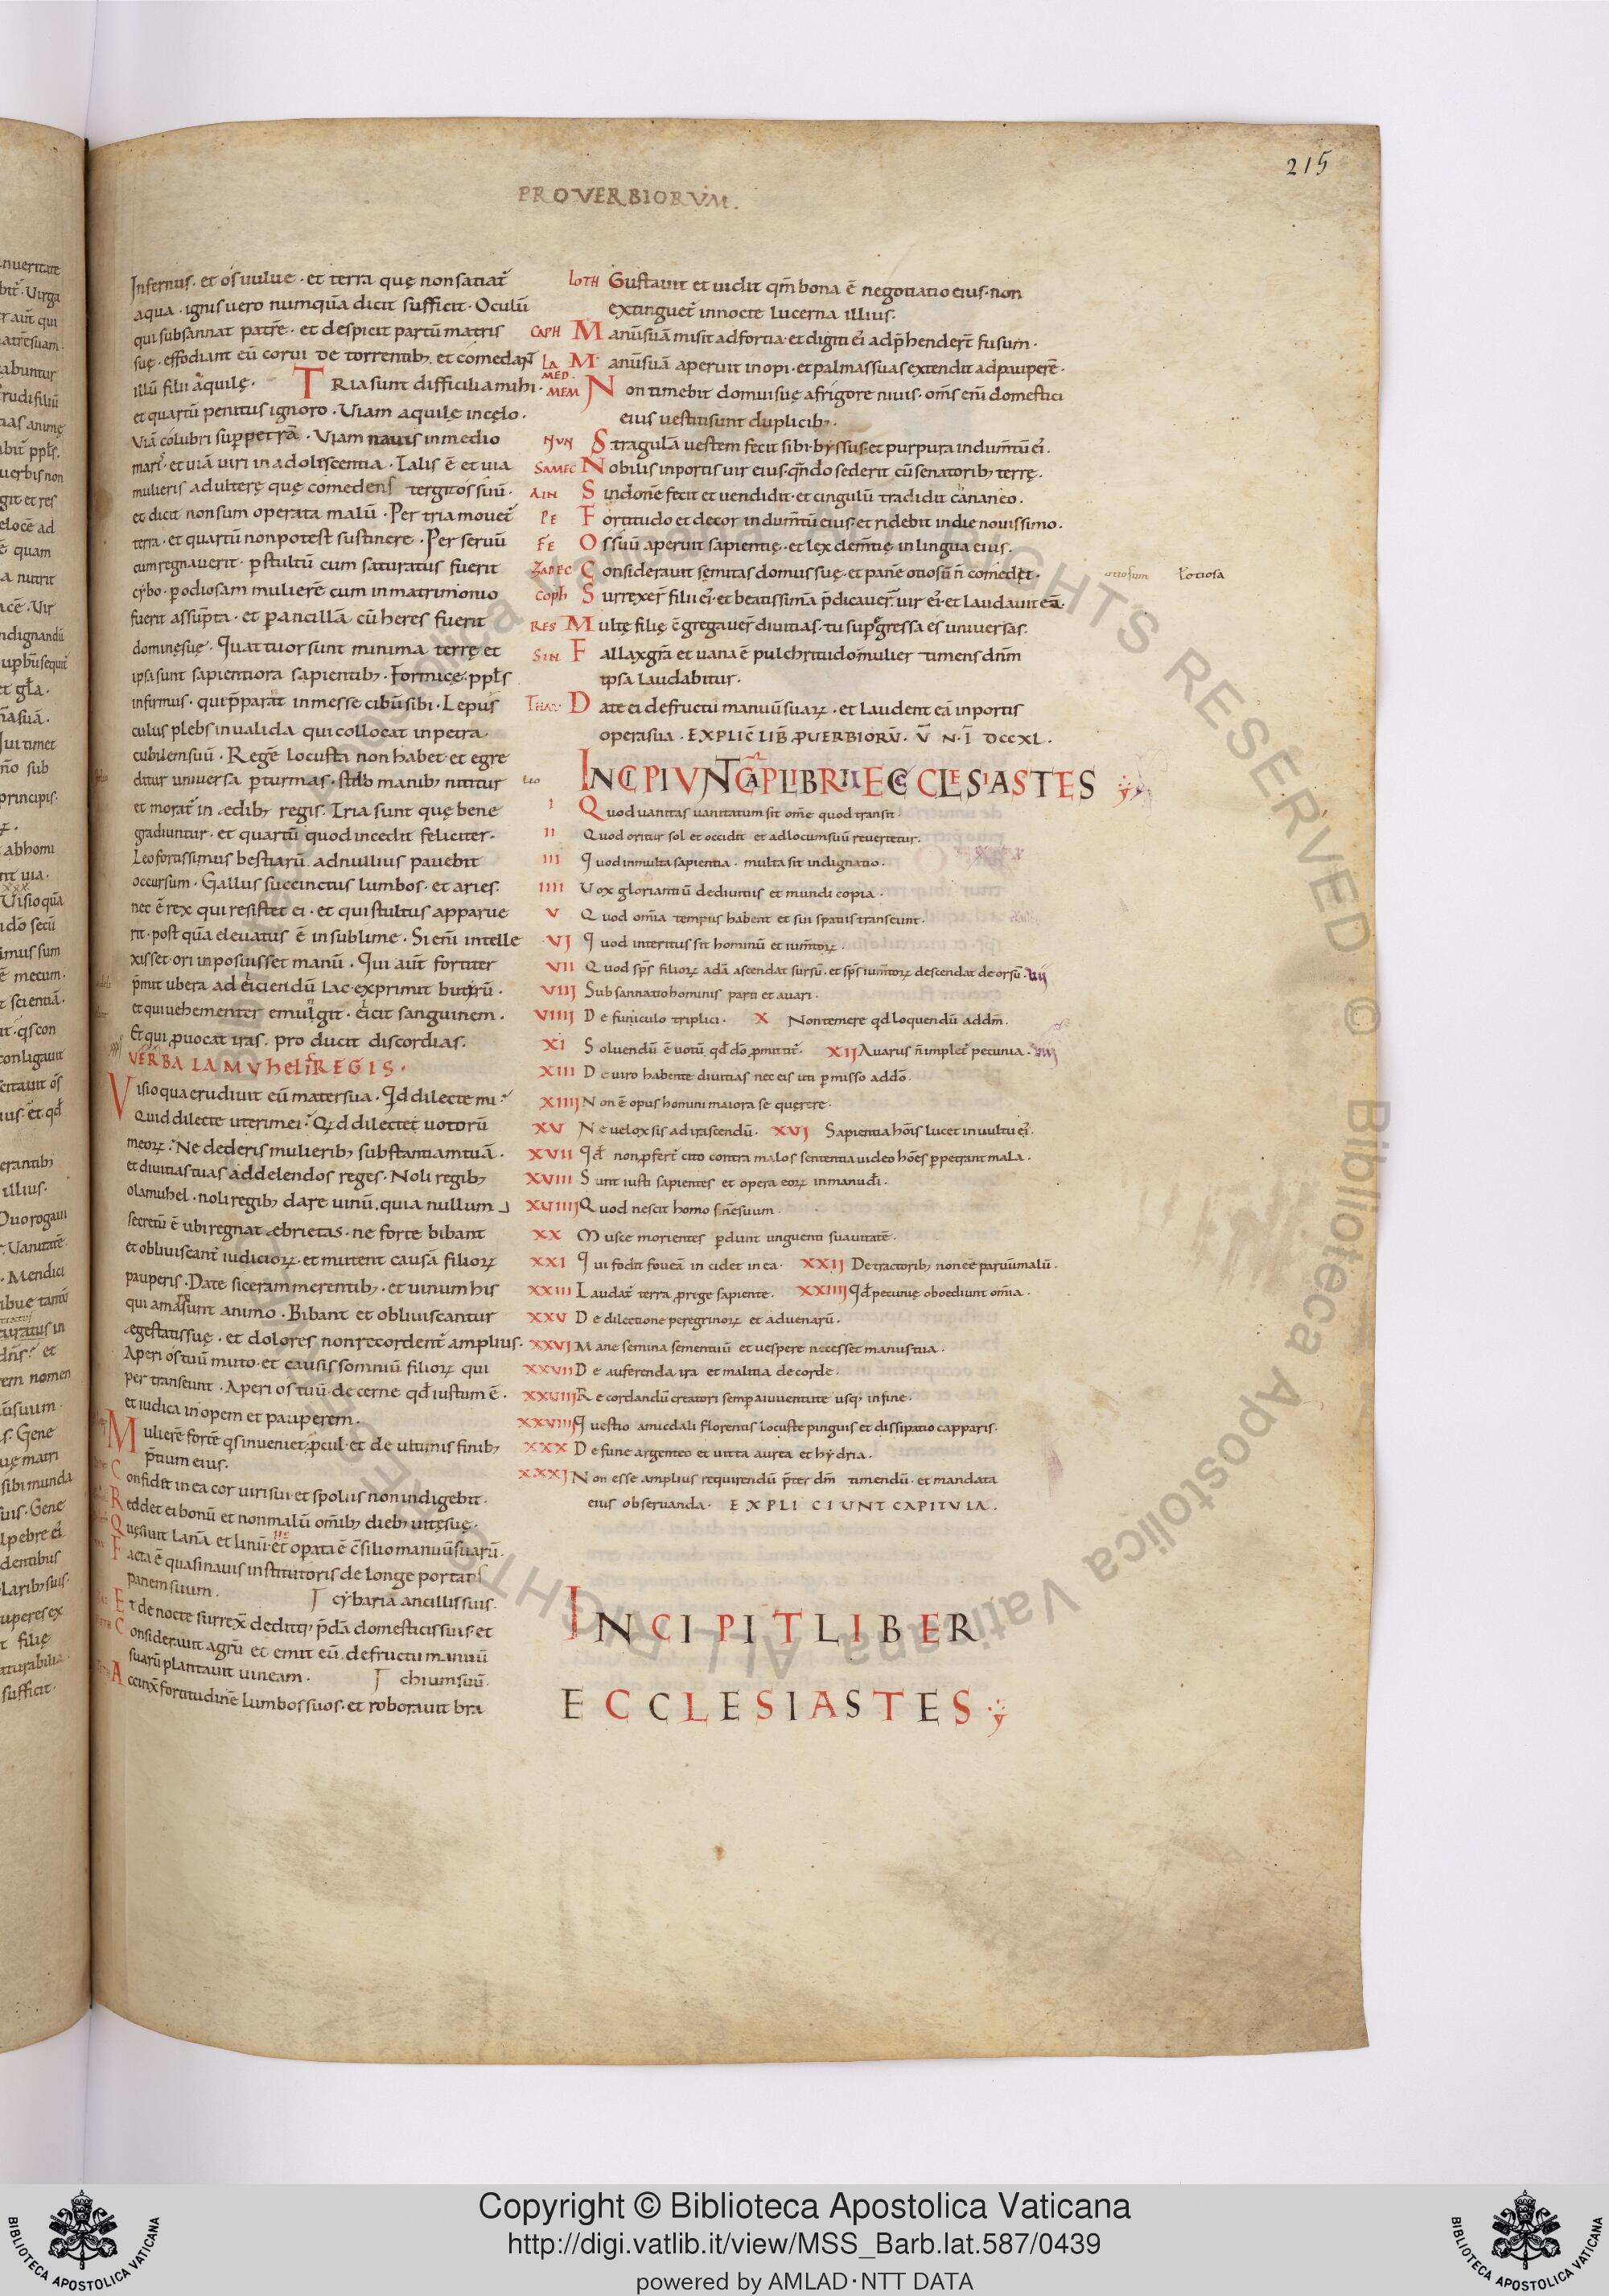 215
PROVERBIORVM.
Infernus. et os uulue. et terra quę non satiat᷑
aqua. ignis uero numquā dicit sufficit. Oculū
qui subsannat patrē. et despicit partū matris
suę. effodiant eū corui de torrentib; et comedant
illū filii aquilę. Tria sunt difficilia mihi.
et quartū penitus ignoro. Viam aquilę in cęlo.
Viā colubri sup petrā. Viam nauis in medio
mari᷑. et uiā uiri in adoliscentia. Talis ē et uia
mulieris adulterę quę comedens tergit os suū.
et dicit non sum operata malū. Per tria mouet᷑
terra. et quartū non potest sustinere. Per seruū
cum regnauerit. p stultū cum saturatus fuerit
cybo. p odiosam mulierē cum in matrimonio
fuerit assūpta. et p ancillā cū heres fuerit
dominę suę. Quattuor sunt minima terrę et
ipsa sunt sapientiora sapientib;. Formicę. ppl̄s
infirmus. qui p̄parat in messe cibū sibi. Lepus
culus plebs inualida qui collocat in petra
cubilem suū. Regē locusta non habet et egre
ditur uniuersa p turmas. stilio manib; nititur
et morat᷑ in ædib; regis. Tria sunt quę bene
gradiuntur. et quartū quod incedit feliciter.
Leo fortissimus bestiarū ad nullius pauebit
occursum. Gallus succinctus lumbos. et aries.
nec ē rex qui resistet ei. et qui stultus apparue
rit. post quā eleuatus ē in sublime. Si enī intelle
xisset. ori inposuisset manū. Qui aut̄ fortiter
p̄mit ubera ad eiciendū lac. exprimit butyrū.
et qui uehementer emulgit. eicit sanguinem.
Et qui ꝓuocat iras. producit discordias.
VERBA LAMVHEL REGIS.
Visio qua erudiuit eū mater sua. Qd dilecte mi.
Quid dilecte uteri mei. Qd dilecte uotorū
meoꝝ. Ne dederis mulierib; substantiam tuā.
et diuitias tuas ad delendos reges. Noli regib;
o lamuhel. noli regib; dare uinū. quia nullum
secretū ē ubi regnat ebrietas. ne forte bibant
et obliuiscant᷑ iudicioꝝ. et mutent causā filioꝝ
pauperis. Date siceram merentib;. et uinum his
qui amaro sunt animo. Bibant et obliuiscantur
ægestatis suę. et dolores non recordent᷑ amplius.
Aperi os tuū muto. et causis somniū filioꝝ qui
per transeunt. Aperi os tuū. decerne qđ iustum ē.
et iudica inopem et pauperem.
Mulierē fortē q̄s inueniet. ꝓcul. et de ultimis finib;
p̄tium eius.
Confidit in ea cor uiri sui. et spoliis non indigebit.
Reddet ei bonū et non malū om̄ib; dieb; uitę suę.
Quęsiuit lanā et linū. et opata ē c̄silio manuū suarū.
Facta ē quasi nauis institutoris de longe portans
panem suum. cybaria ancillis suis.
Et de nocte surrex̄. deditq; p̄dā domesticis suis. et
Considerauit agrū et emit eū. de fructu manuū
suarū plantauit uineam. chium suū.
Accinx̄ fortitudinē lumbos suos. et roborauit bra
LOTH Gustauit et uidit qm̄ bona ē negotiatio eius. non
extinguet᷑ in nocte lucerna illius.
CAPH Manū suā misit ad fortia. et digiti ei᷑ adp̄hendert̄ fusum.
LAMED. Manū suā aperuit inopi. et palmas suas extendit ad pauperē.
MEM Non timebit domui suę a frigore niuis. om̄s enī domestici
eius uestiti sunt duplicib;.
NVN Stragulā uestem fecit sibi. byssus. et purpura indum̄tū ei᷑.
SAMEC Nobilis in portis uir eius. qn̄do sederit cū senatorib; terrę.
AIN Sindonē fecit et uendidit. et cingulū tradidit cananeo.
PE Fortitudo et decor indum̄tū eius. et ridebit in die nouissimo.
FE Os suū aperuit sapientię. et lex clem̄tię in lingua eius.
ZADEC Considerauit semitas domus suę. et panē otiosū n̄ comedet. otiosum ł otiosa
COPH Surrexer̄ filii ei᷑. et beatissimā p̄dicauer̄. uir ei᷑. et laudauit eā.
RES Multę filię c̄gregauer̄ diuitias. tu supgressa es uniuersas.
SIN Fallax gr̄a et uana ē pulchritudo. mulier timens dn̄m
ipsa laudabitur.
THAV. Date ei de fructu manuū suaꝝ. et laudent eā in portis
opera sua. EXPLIC̄ LIB̄ ꝓVERBIORV̄. V̄ N. Ī DCCXL.
INCIPIVNT CAP LIBRI ECCLESIASTES
I Quod uanitas uanitatum sit om̄e quod transit.
II Quod oritur sol et occidit et ad locum suū reuertetur.
III Quod in multa sapientia. multa sit indignatio.
IIII Vox gloriantiū de diuitiis et mundi copia.
V Quod om̄ia tempus habent et sui spatiis transeunt.
VI Quod interitus sit hominū et ium̄toꝝ.
VII Quod sp̄s filioꝝ adā ascendat sursū. et sp̄s ium̄toꝝ descendat deorsū.
VIII Subsannatio hominis parci et auari.
VIIII De funiculo triplici. X Non temere qd loquendū addm̄.
XI Soluendū ē uotū qđ dō ꝓmittit᷑. XII Auarus n̄ implet᷑ pecunia.
XIII De uiro habente diuitias nec eis uti pmisso a ddō.
XIIII Non ē opus homini maiora se querere.
XV Ne uelox sis ad irascendū. XVI Sapientia hōis lucet in uultu ei᷑.
XVII Qđ non ꝓfert᷑ cito contra malos sententia uideo hōes ppetrant mala.
XVIII Sunt iusti sapientes et opera eoꝝ in manu dī.
XVIIII Quod nescit homo finē suum.
XX Musce morientes pdunt unguenti suauitatē.
XXI Qui fodit foueā incidet in ea. XXII Detractorib; non eē paruū malū.
XXIII Laudat᷑ terra ꝓ rege sapiente. XXIIII Qđ pecunię oboediunt om̄ia.
XXV De dilectione peregrinoꝝ et aduenarū.
XXVI Mane semina sementiū et uespere ne cesset manus tua.
XXVII De auferenda ira et malitia de corde.
XXVIII Recordandū creatori semp a iuuentute usq; in fine.
XXVIIII Questio amicdali florentis locuste pinguis et dissipatio capparis.
XXX De fune argenteo et uitta aurea et hydria.
XXXI Non esse amplius requirendū p̄ter dm̄ timendū. et mandata
eius obseruanda. EXPLICIUNT CAPITVLA.
INCIPIT LIBER
ECCLESIASTES
Copyright © Biblioteca Apostolica Vaticana
http://digi.vatlib.it/view/MSS_Barb.lat.587/0439
powered by AMLAD·NTT DATA
BIBLIOTECA APOSTOLICA VATICANA
BIBLIOTECA APOSTOLICA VATICANA